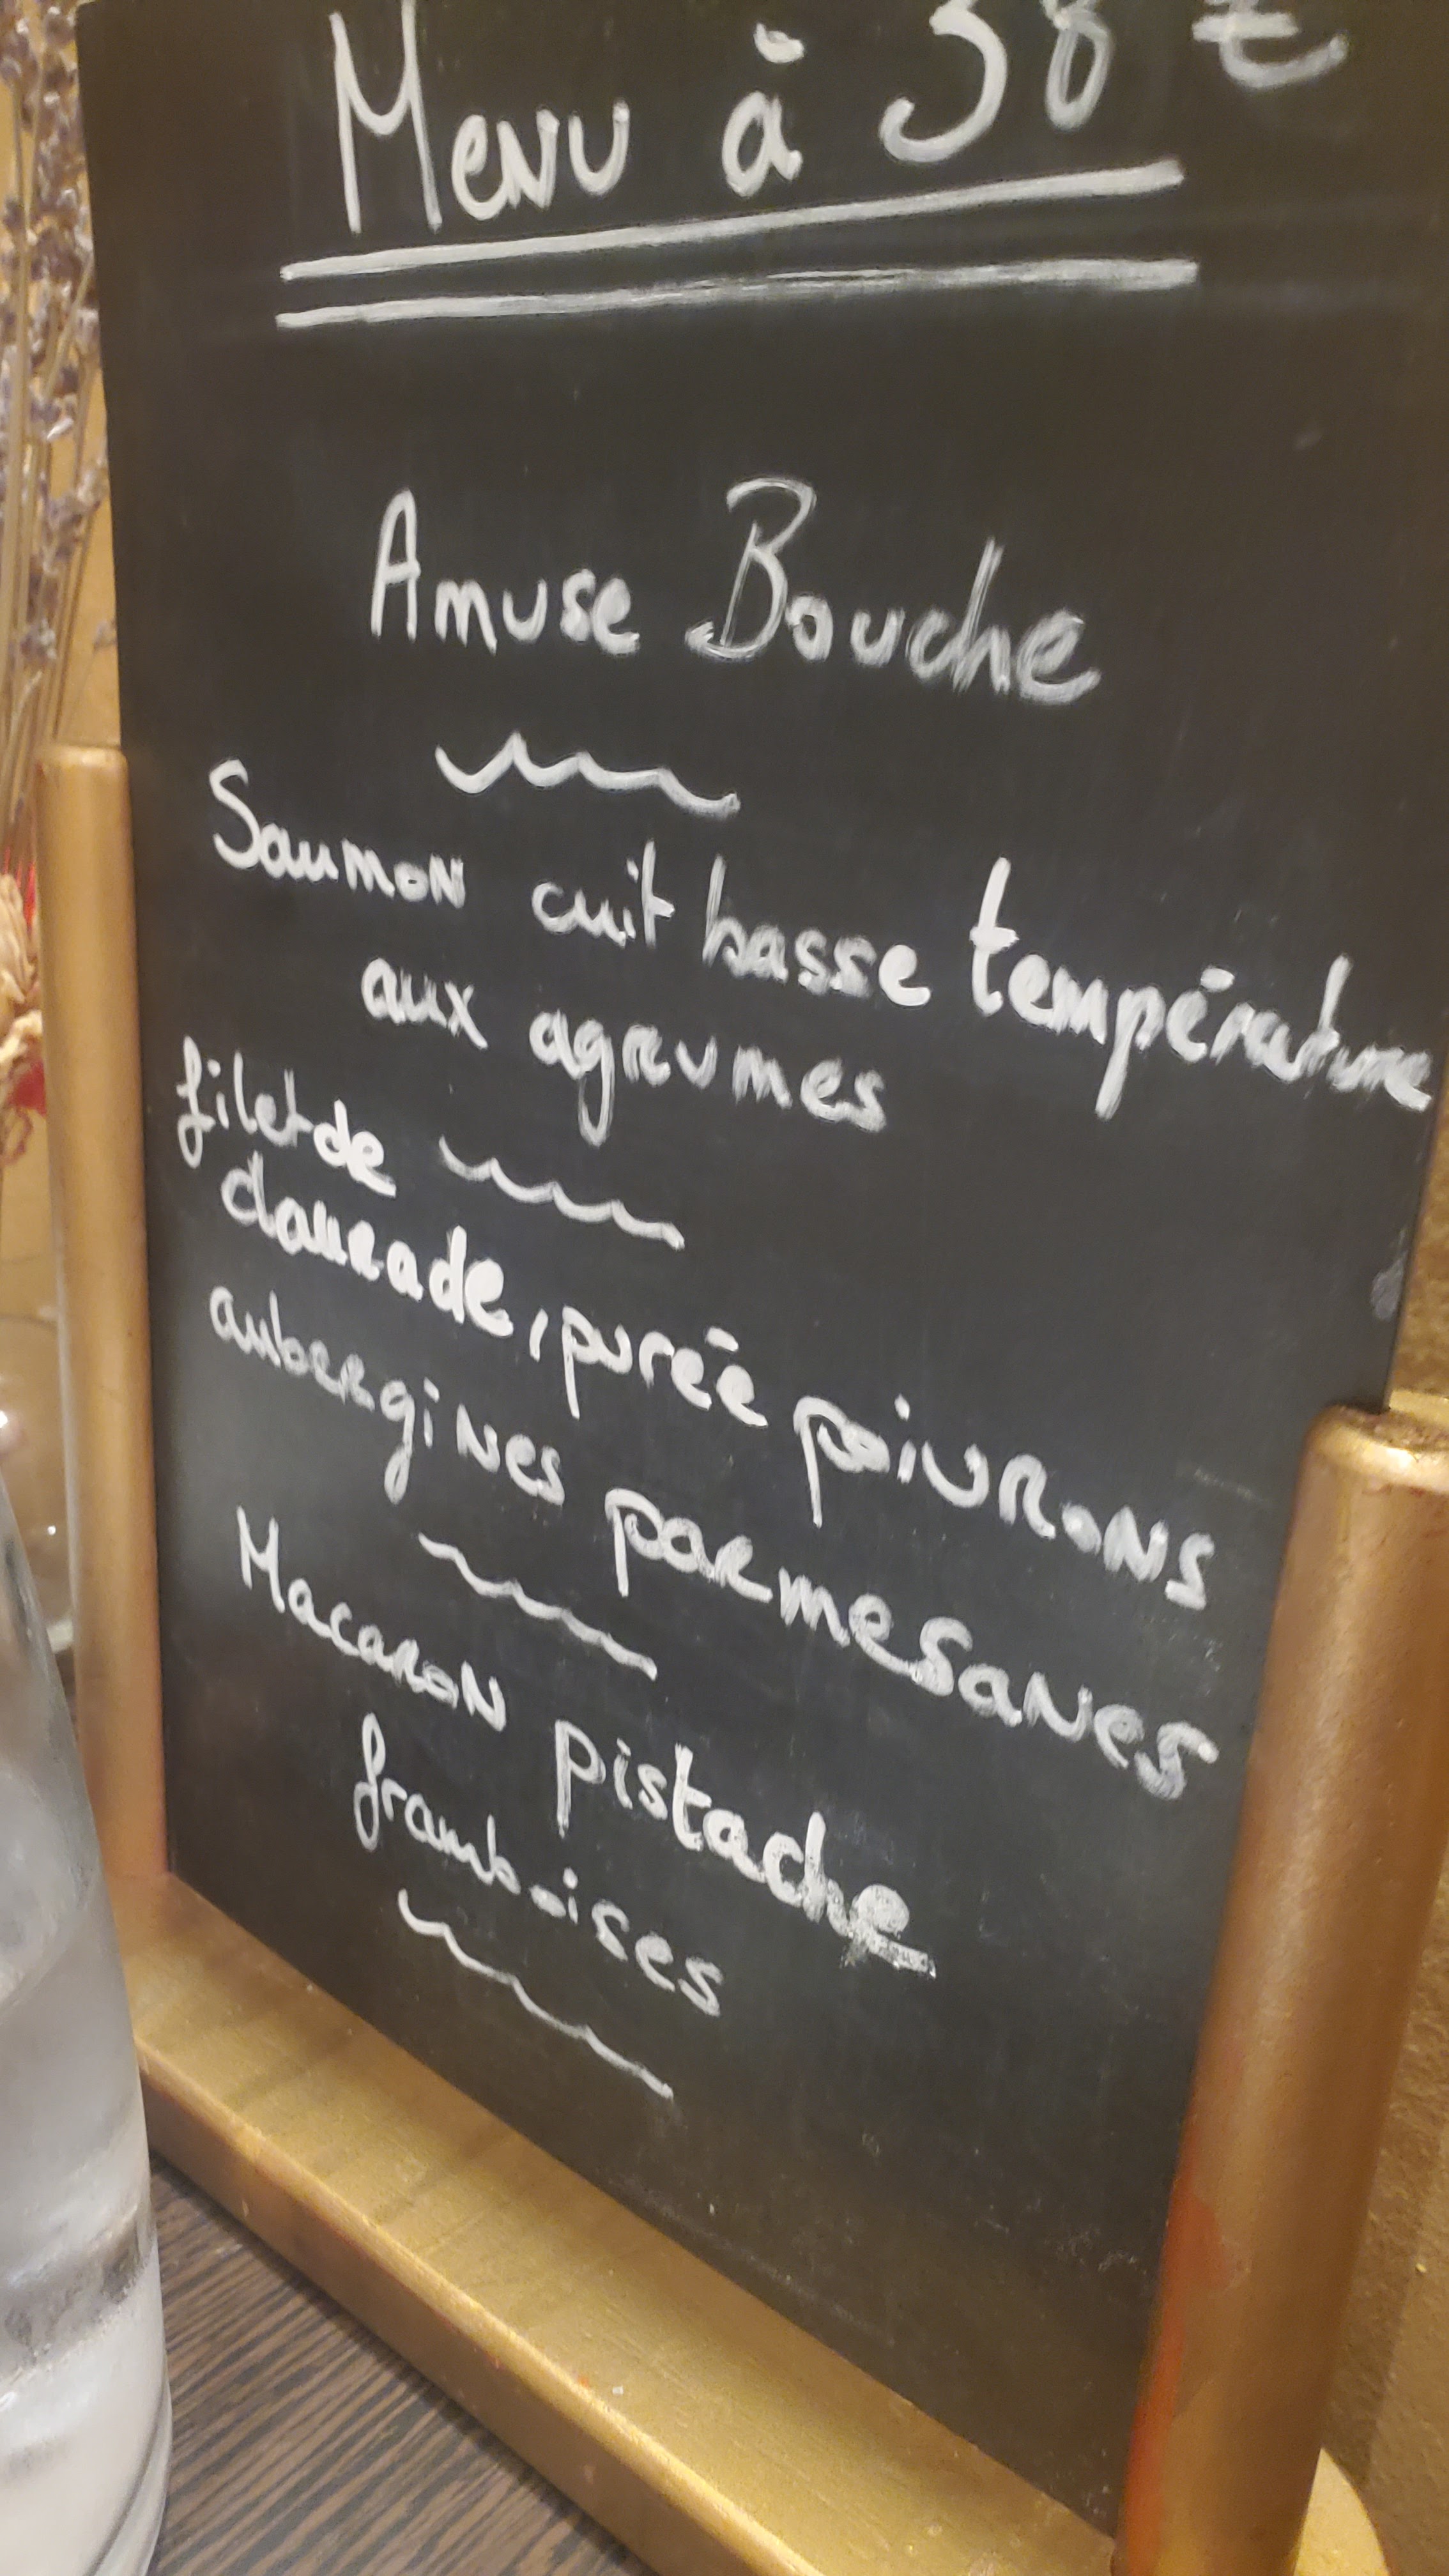 Menu à 38 €
Amuse Bouche
Saumon cuit basse température
aux agrumes
filet de
daurade, purée poivrons
aubergines parmesanes
Macaron pistache
framboises